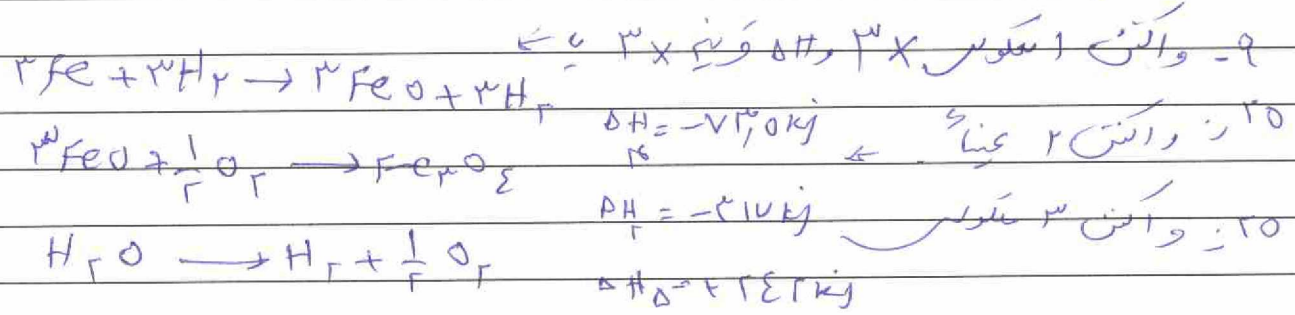 ۹- واکنش ۱ معکوس ۳× و ΔH قرینه ۳× ←
۳Fe + ۳H۲ → ۳FeO + ۳H۲ ΔH۴ = -۷۳,۵kj
۲۵ر واکنش ۲ عیناً ←
۳FeO + ۱/۲ O۲ → Fe۳O۴ ΔH۲ = -۳۱۷kj
۲۵ر واکنش ۳ معکوس
H۲O → H۲ + ۱/۲ O۲ ΔH۵ = +۲۴۲kj